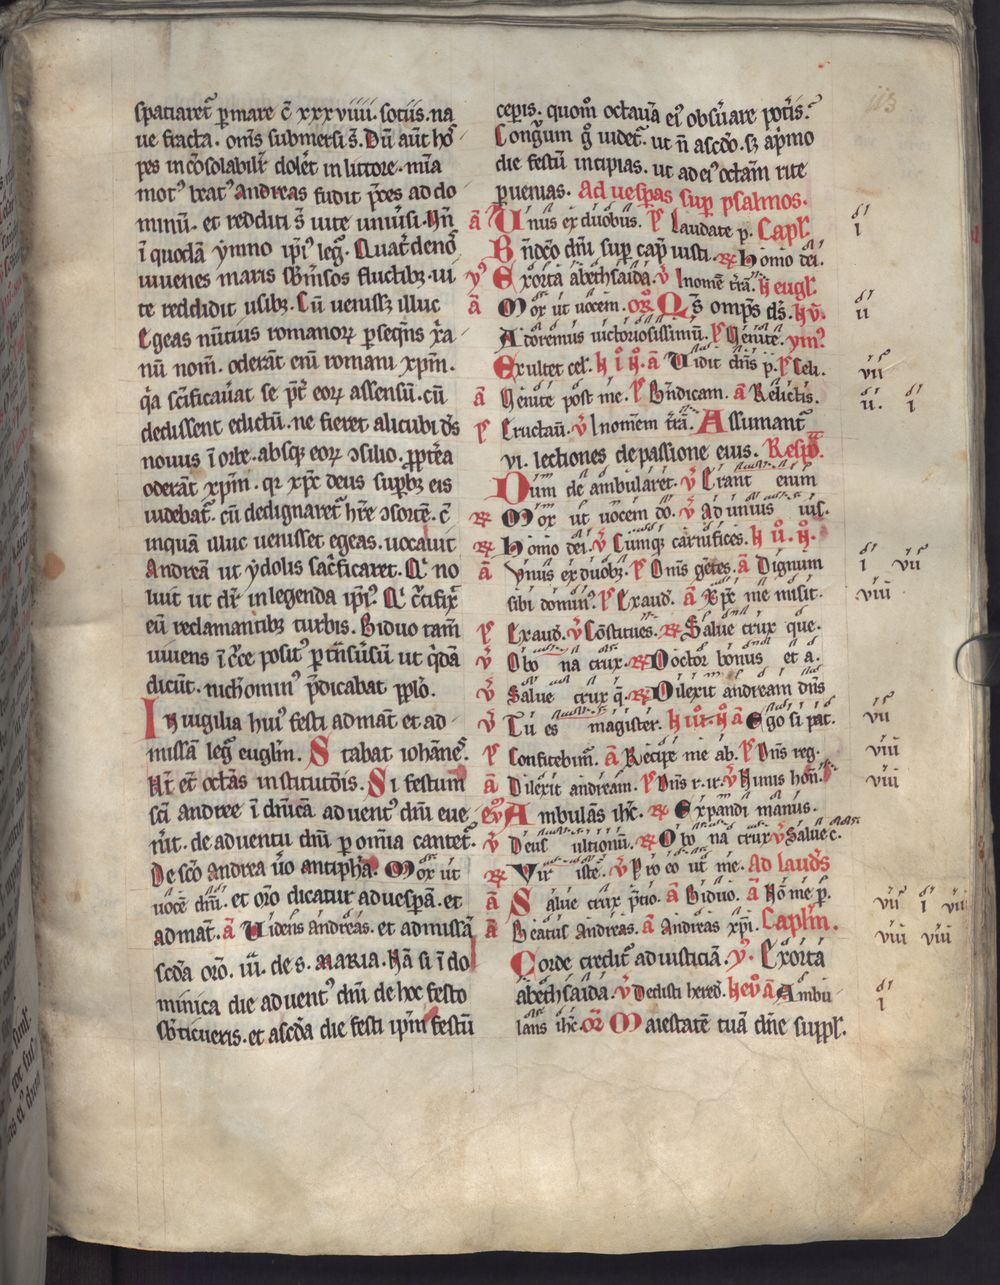 spaciaret᷑ p mare c̄ xxxviiii. sociis. na
ue fracta. om̄s submersi s̄. Dū aut̄ ho
pes inc̄osolabilit̉ dolēt in littore. mīa
mot⁹ beat⁹ andreas fudit p̄ces ad do
minū. et redditi s̄ uite uniūsi. Hn̄
ī quodā ymno ip̄i⁹ leg᷑. Quat̉ denos
iuuenes maris sb̄m̉sos fluctib; ui
te reddidit usib;. Cū uenissꝫ illuc
Egeas nūtius romanoꝝ p̄seqn̄s xr̄a
nū nom̄. oderāt eni romani xp̄m.
qͥa sc̄ificau̓at se p̄t̓ eoꝝ assensū. cū
dedissent edictū. ne fieret alicubi ds̄
nouus ī orbe. absqꝫ eoꝝ ꝯsilio. ꝓpt̓ea
oderāt xp̄m. qꝛ xp̄c deus supbꝫ eis
uidebat᷑. cū dedignaret᷑ hr̄e ꝯsortē. c̄
inquā illuc uenisset egeas. uocauit
Andreā ut ydolis sac̓ficaret. At no
luit ut dr̄ in legenda ip̄i⁹. At c̓cifix̓
eū reclamantibꝫ turbis. Biduo tam̄
uiuens ī c̓ce posit⁹ p t̓nsūsū ut qͥdā
dicūt. nichomin⁹ p̄dicabat pplo.
In uigilia hui⁹ festi ad mat̄ et ad
missā leg᷑ eugl̄m. Stabat iohānes.
Hr̄ et octās institutōis. Si festum
sc̄i andree ī dn̄icā aduent⁹ dn̄i eue
n̓it. de aduentu dn̄i p om̄ia cantet᷑.
De sc̄o andrea ūo antipha. Mox ut
uocē dn̄i. et oro dicatur ad uesp̄ā. et
ad mat̄. ā Uidens andreas. et ad missā
scd̄a orō. iii. de s. maria. Hā si ī do
minica die aduent⁹ dn̄i de hoc festo
sb̄ticueris. et ascd̄a die festi ip̄m festū
ceperis. quom̊ octauā ei⁹ obsūare pot̓is?
Congͣum gͦ uidet᷑. ut n̄ ascd̄o. sꝫ ap̓mo
die festū incipias. ut ad ei⁹ octām rite
puenias. Ad uesp̄as sup psalmos.
ā Unus ex duobus. p̄s Laudate p. Capl̄.
Bn̄dc̄o dn̄i sup cap̄ iusti. ℟ Homo dei.
y⁹ Exorta a bethsaida. v̄ In omē t̓rā. H eugl̄.
ā Mox ut uocem. or̄ Qs̄ omp̄s ds̄. Hȳ.
Adoremus uictoriosissimū. p̄s Uenite. ym⁹
Exultet cel. Hi H. ā Uidit dn̄s p. p̄s Celi.
ā Uenite post me. p̄s Bn̄dicam. ā Relictis.
p̄s Eructau. v̄ In omem t̓rā. Assumant᷑
vi. lectiones de passione eius. Resp̄.
Dum de ambularet. v̄ Erant enim
℟ Mox ut uocem do. v̄ Ad unius ius.
℟ Homo dei. v̄ Cumqꝫ carnifices. H ii. H.
ā Unus ex duobꝫ. p̄s Om̄s gētes. ā Dignum
sibi domin⁹. p̄s Exaud. ā Xp̄c me misit.
p̄s Exaud. v̄ Cōstitues. ℟ Salue crux que.
v̄ O bona crux. ℟ Doctor bonus et a.
v̄ Salue crux q. ℟ Dilexit andream dn̄s
v̄ Tu es magister. H iii. H ā Ego si pat.
p̄s Confitebim̄. ā Recipe me ab. p̄s Dn̄s reg.
ā Dilexit andream. p̄s Dn̄s r. ir. v̄ Nimis hon̄.
ev̄ Ambulās ih̄c. ℟ Expandi manus.
v̄ Deus ultionū. ℟ O bona crux v̄ Salue c.
℟ Vir iste. v̄ Pro eo ut me. Ad laud̄s
ā Salue crux p̄cio. ā Biduo. ā Nō me p.
ā Beatus Andreas. ā Andreas xp̄i. Capl̄m.
Corde credit᷑ ad iusticiā. y. Exorta
a bethsaida. v̄ Dedisti hered. H ev̄ ā Ambu
lans ih̄c. or̄ Maiestatē tuā dn̄e suppl̄.
i
ii
vii
ii. i
i vii
viii
vii
viii
viii
vii i vii
viii viii
i